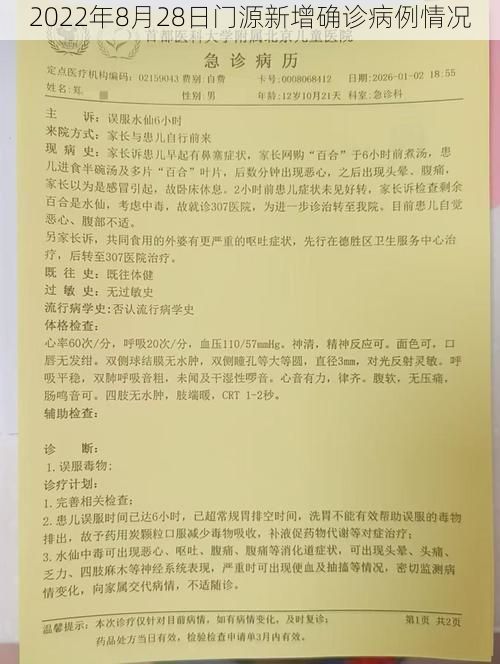 2022年8月28日门源新增确诊病例情况
首都医科大学附属北京儿童医院
急诊病历
定点医疗机构编码：02159043 费别：自费 卡号：0008068412 日期：2026-01-02 18:55
姓名：郑 性别：男 年龄：12岁10月21天 科室：急诊科
主 诉：误服水仙6小时
来院方式：家长与患儿自行前来
现 病 史：家长诉患儿早起有鼻塞症状，家长网购“百合”于6小时前煮汤，患
儿进食半碗汤及多片“百合”叶片，后数分钟出现恶心，之后出现头晕、腹痛，
家长以为是感冒引起，故卧床休息。2小时前患儿症状未见好转，家长诉检查剩余
百合是水仙，考虑中毒，故就诊307医院，为进一步诊治转至我院。目前患儿自觉
恶心、腹部不适。
另家长诉，共同食用的外婆有更严重的呕吐症状，先行在德胜区卫生服务中心治
疗，后转至307医院治疗。
既 往 史：既往体健
过 敏 史：无过敏史
流行病学史：否认流行病学史
体格检查：
心率60次/分，呼吸20次/分，血压110/57mmHg。神清，精神反应可。面色可。口
唇无发绀。双侧球结膜无水肿，双侧瞳孔等大等圆，直径3mm，对光反射灵敏。呼
吸平稳，双肺呼吸音粗，未闻及干湿性啰音。心音有力，律齐。腹软，无压痛，
肠鸣音可。四肢无水肿，肢端暖，CRT 1-2秒。
辅助检查：
诊 断：
1.误服毒物；
诊疗计划：
1.完善相关检查；
2.患儿误服时间已达6小时，已超常规胃排空时间，洗胃不能有效帮助误服的毒物
排出，故予药用炭颗粒口服减少毒物吸收，补液促药物代谢等对症治疗；
3.水仙中毒可出现恶心、呕吐、腹痛、腹痛等消化道症状，可出现头晕、头痛、
乏力、四肢麻木等神经系统表现，严重时可出现便血及抽搐等情况，密切监测病
情变化，向家属交代病情，不适随诊。
温馨提示：本次诊疗仅针对目前病情，如有病情变化，及时复诊；
药品处方当日有效，检验检查申请单3月内有效。
第1页 共2页